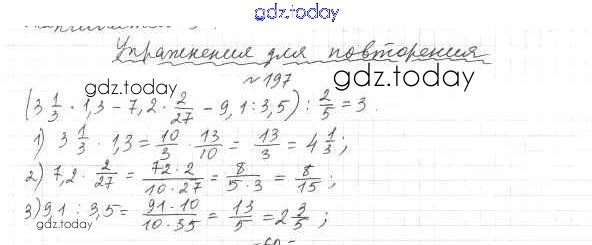 gdz.today
Упражнения для повторения
№ 197
gdz.today
gdz.today
(3 1/3 · 1,3 - 7,2 · 2/27 - 9,1 : 3,5) : 2/5 = 3.
1) 3 1/3 · 1,3 = 10/3 · 13/10 = 13/3 = 4 1/3;
2) 7,2 · 2/27 = 72·2/10·27 = 8/5·3 = 8/15;
3) 9,1 : 3,5 = 91·10/10·35 = 13/5 = 2 3/5;
gdz.today